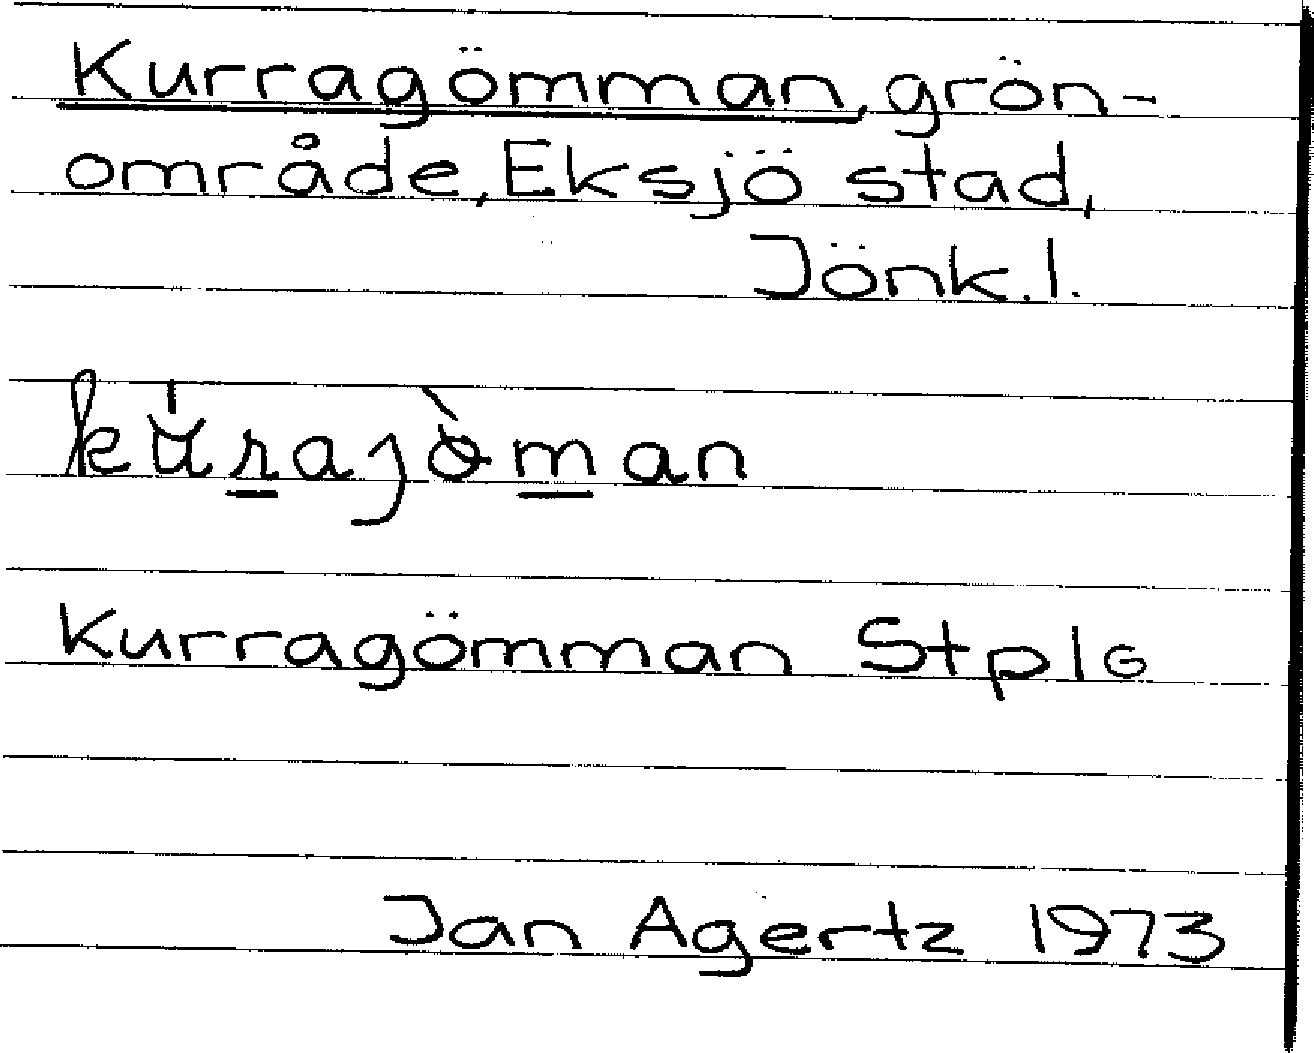 Kurragömman, grön-
område, Eksjö stad,
Jönk. l.
Kurragömman Stpl6
Jan Agertz 1973